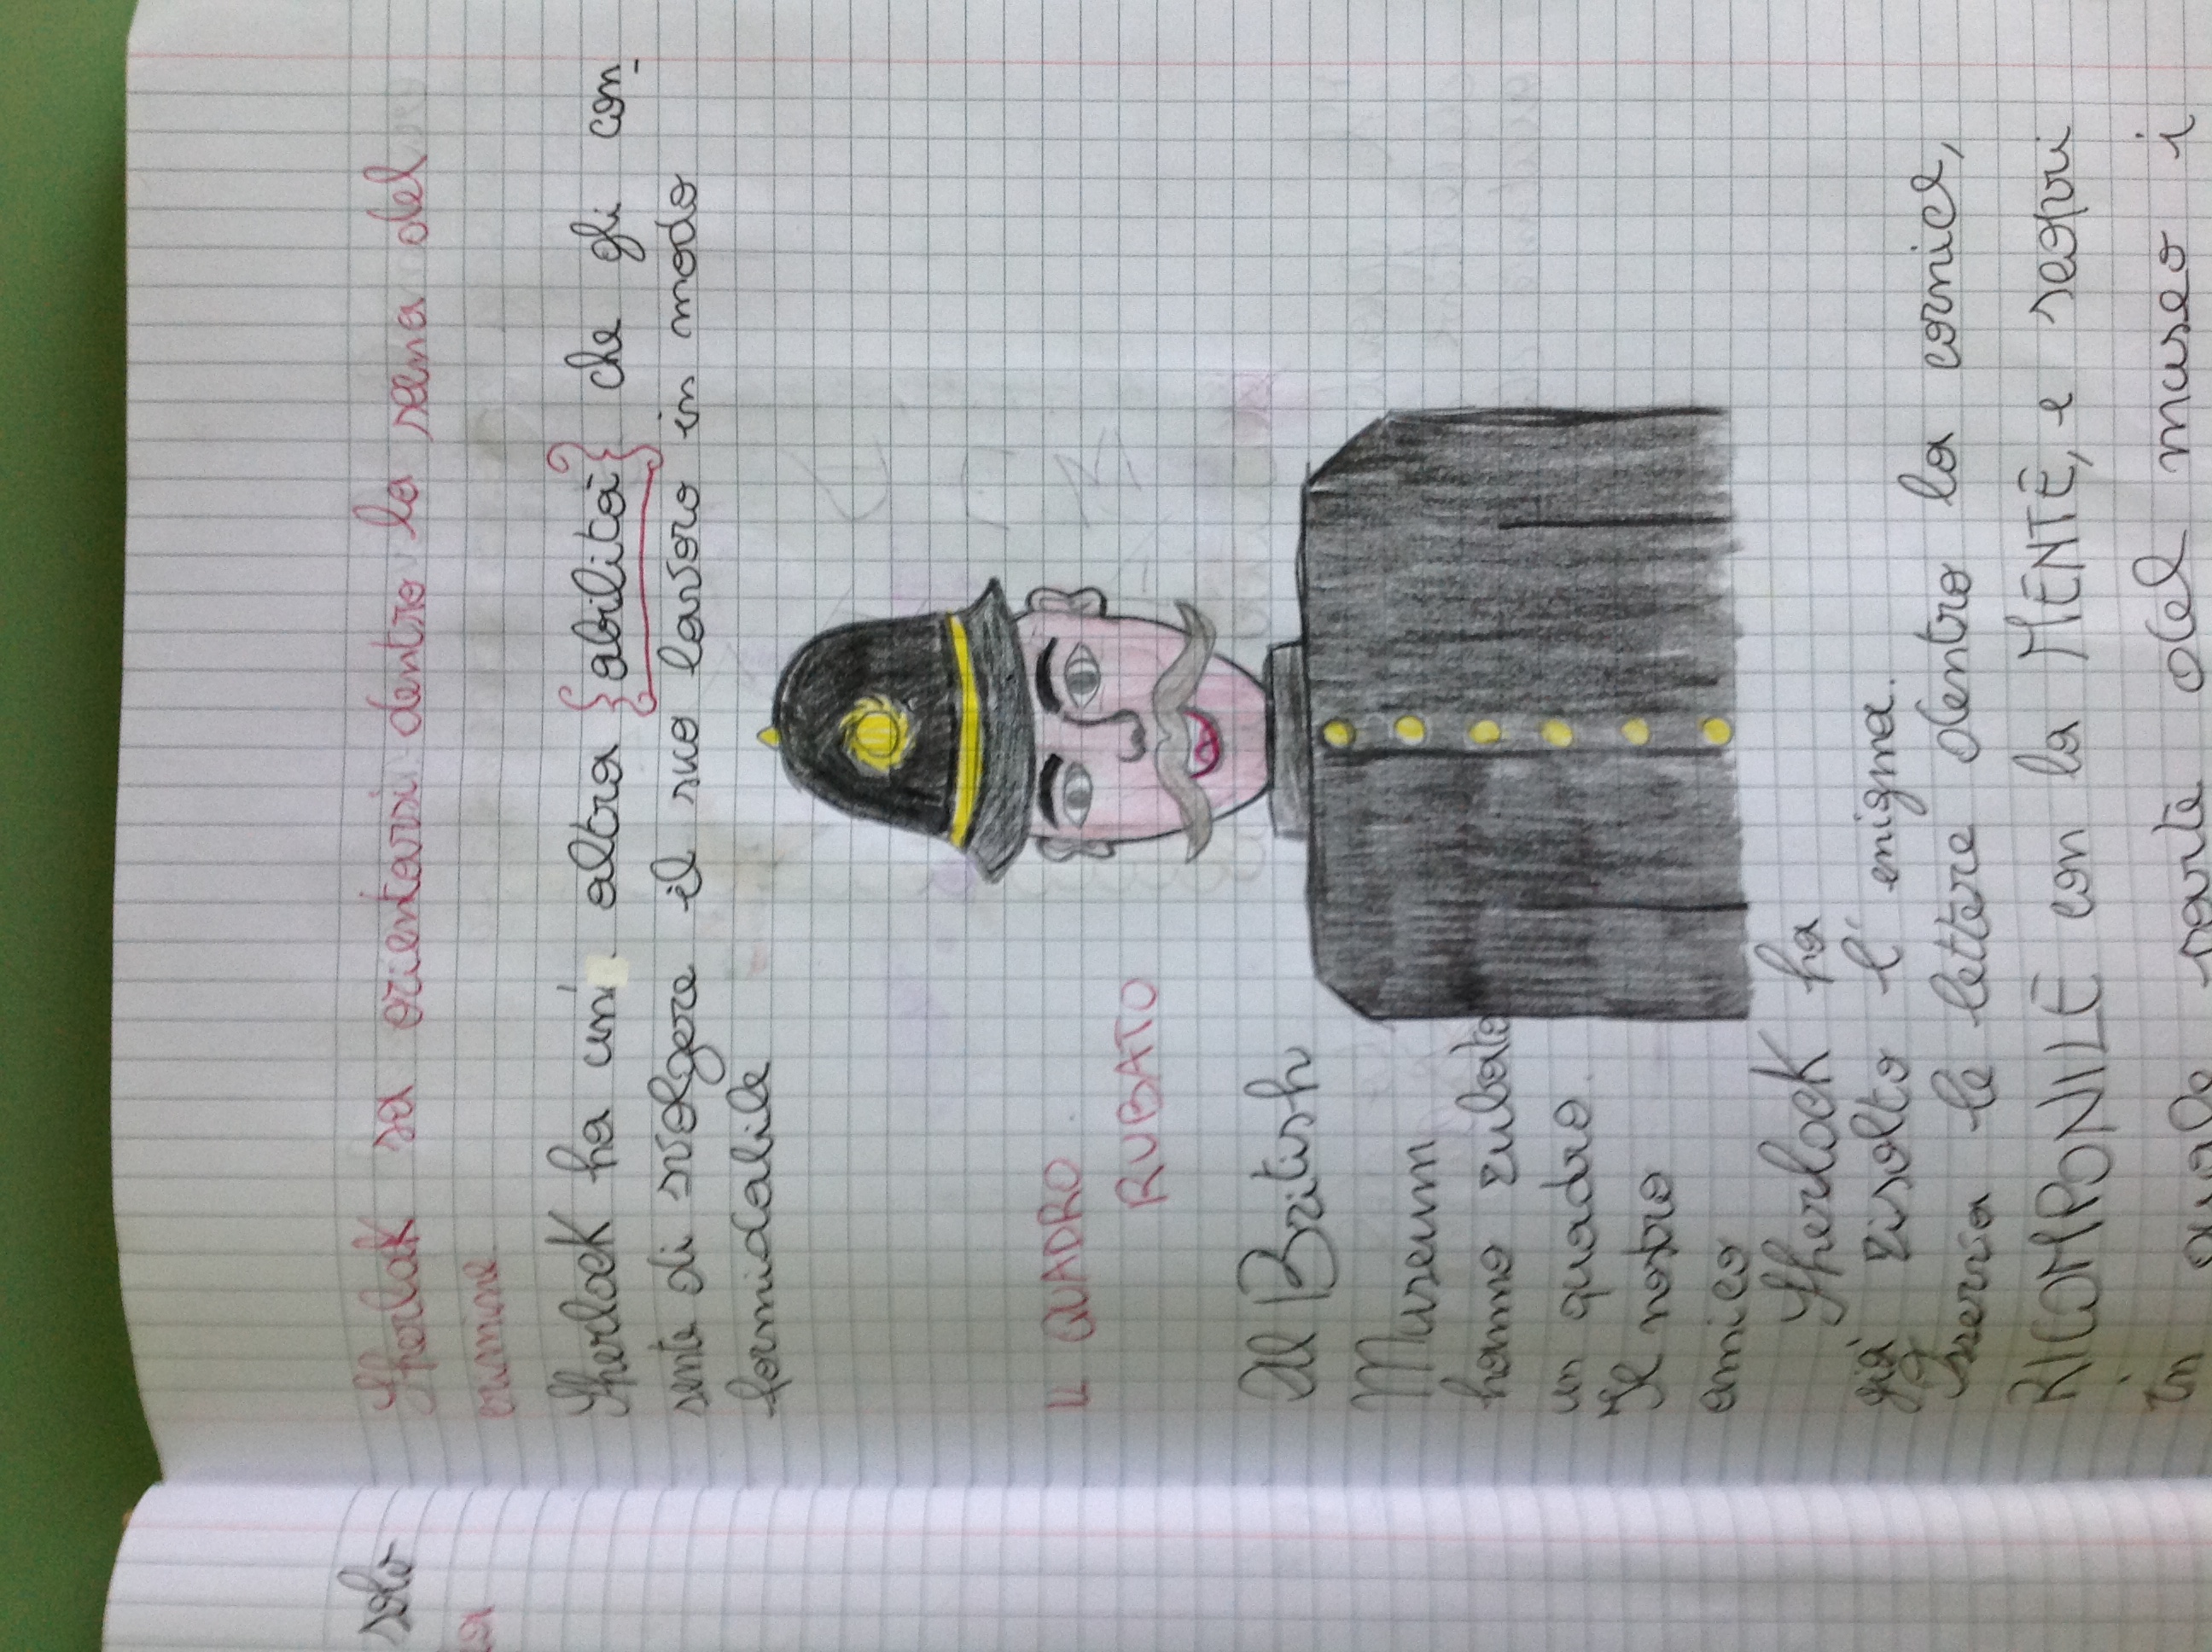 Sherlok sa orientarsi dentro la scena del
crimine
Sherlock ha un' altra {abilità} che gli con-
sente di svolgere il suo lavoro in modo
formidabile
IL QUADRO
RUBATO
Al British
Museum
hanno rubato
un quadro.
Il nostro
amico
Sherlock ha
già risolto l'enigma.
Osserva le lettere dentro la cornice,
RICOMPONILE con la MENTE, e scopri
in quale parte del museo i
solo